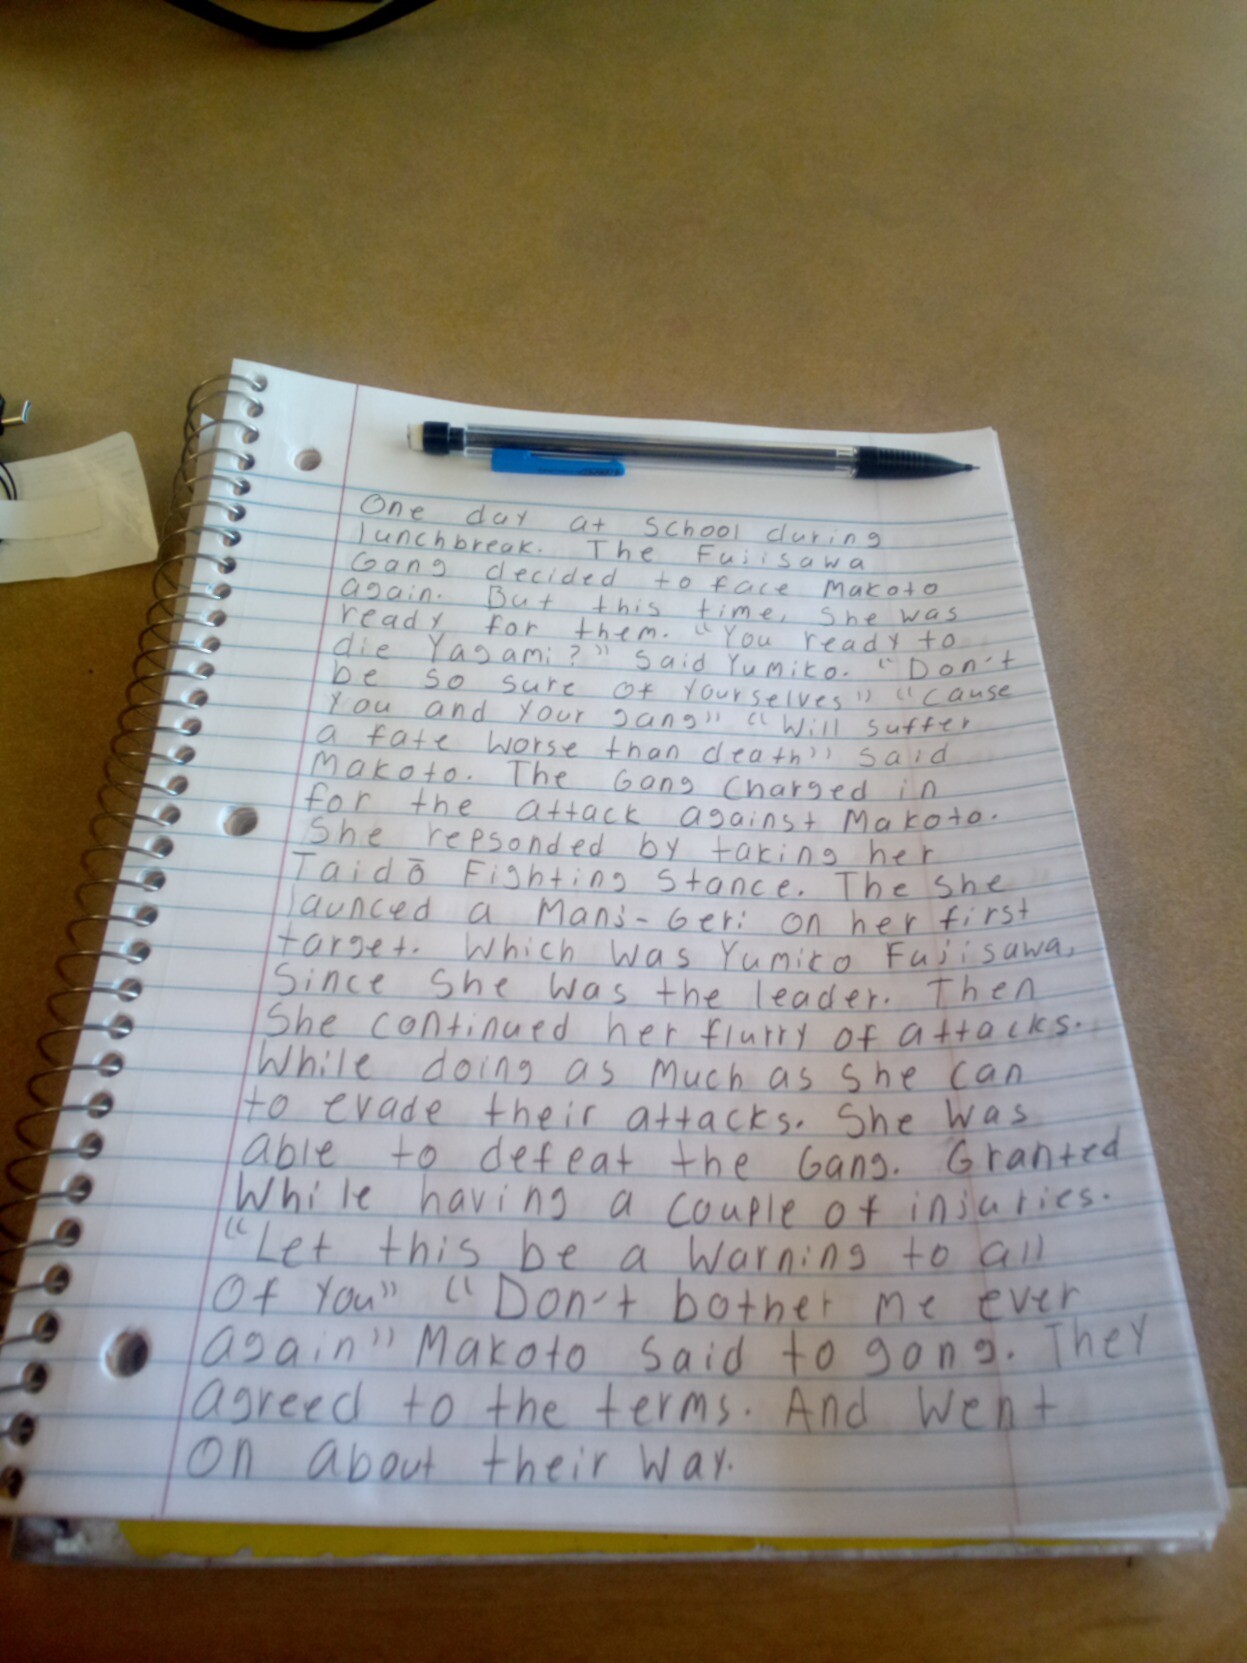 One day at school during
lunchbreak. The Fujisawa
Gang decided to face Makoto
again. But this time, she was
ready for them. "You ready to
die Yagami?" Said Yumiko. "Don't
be so sure of Yourselves" "Cause
You and Your gang" "Will suffer
a fate worse than death" Said
Makoto. The Gang Charged in
for the attack against Makoto.
She repsonded by taking her
Taidō Fighting Stance. The she
launced a Manj-Geri on her first
target. Which was Yumiko Fujisawa,
Since she was the leader. Then
She continued her flurry of attacks.
While doing as Much as she can
to evade their attacks. She was
able to defeat the Gang. Granted
While having a couple of injuries.
"Let this be a warning to all
Of You" "Don't bother me ever
again" Makoto Said to gang. They
agreed to the terms. And went
on about their way.